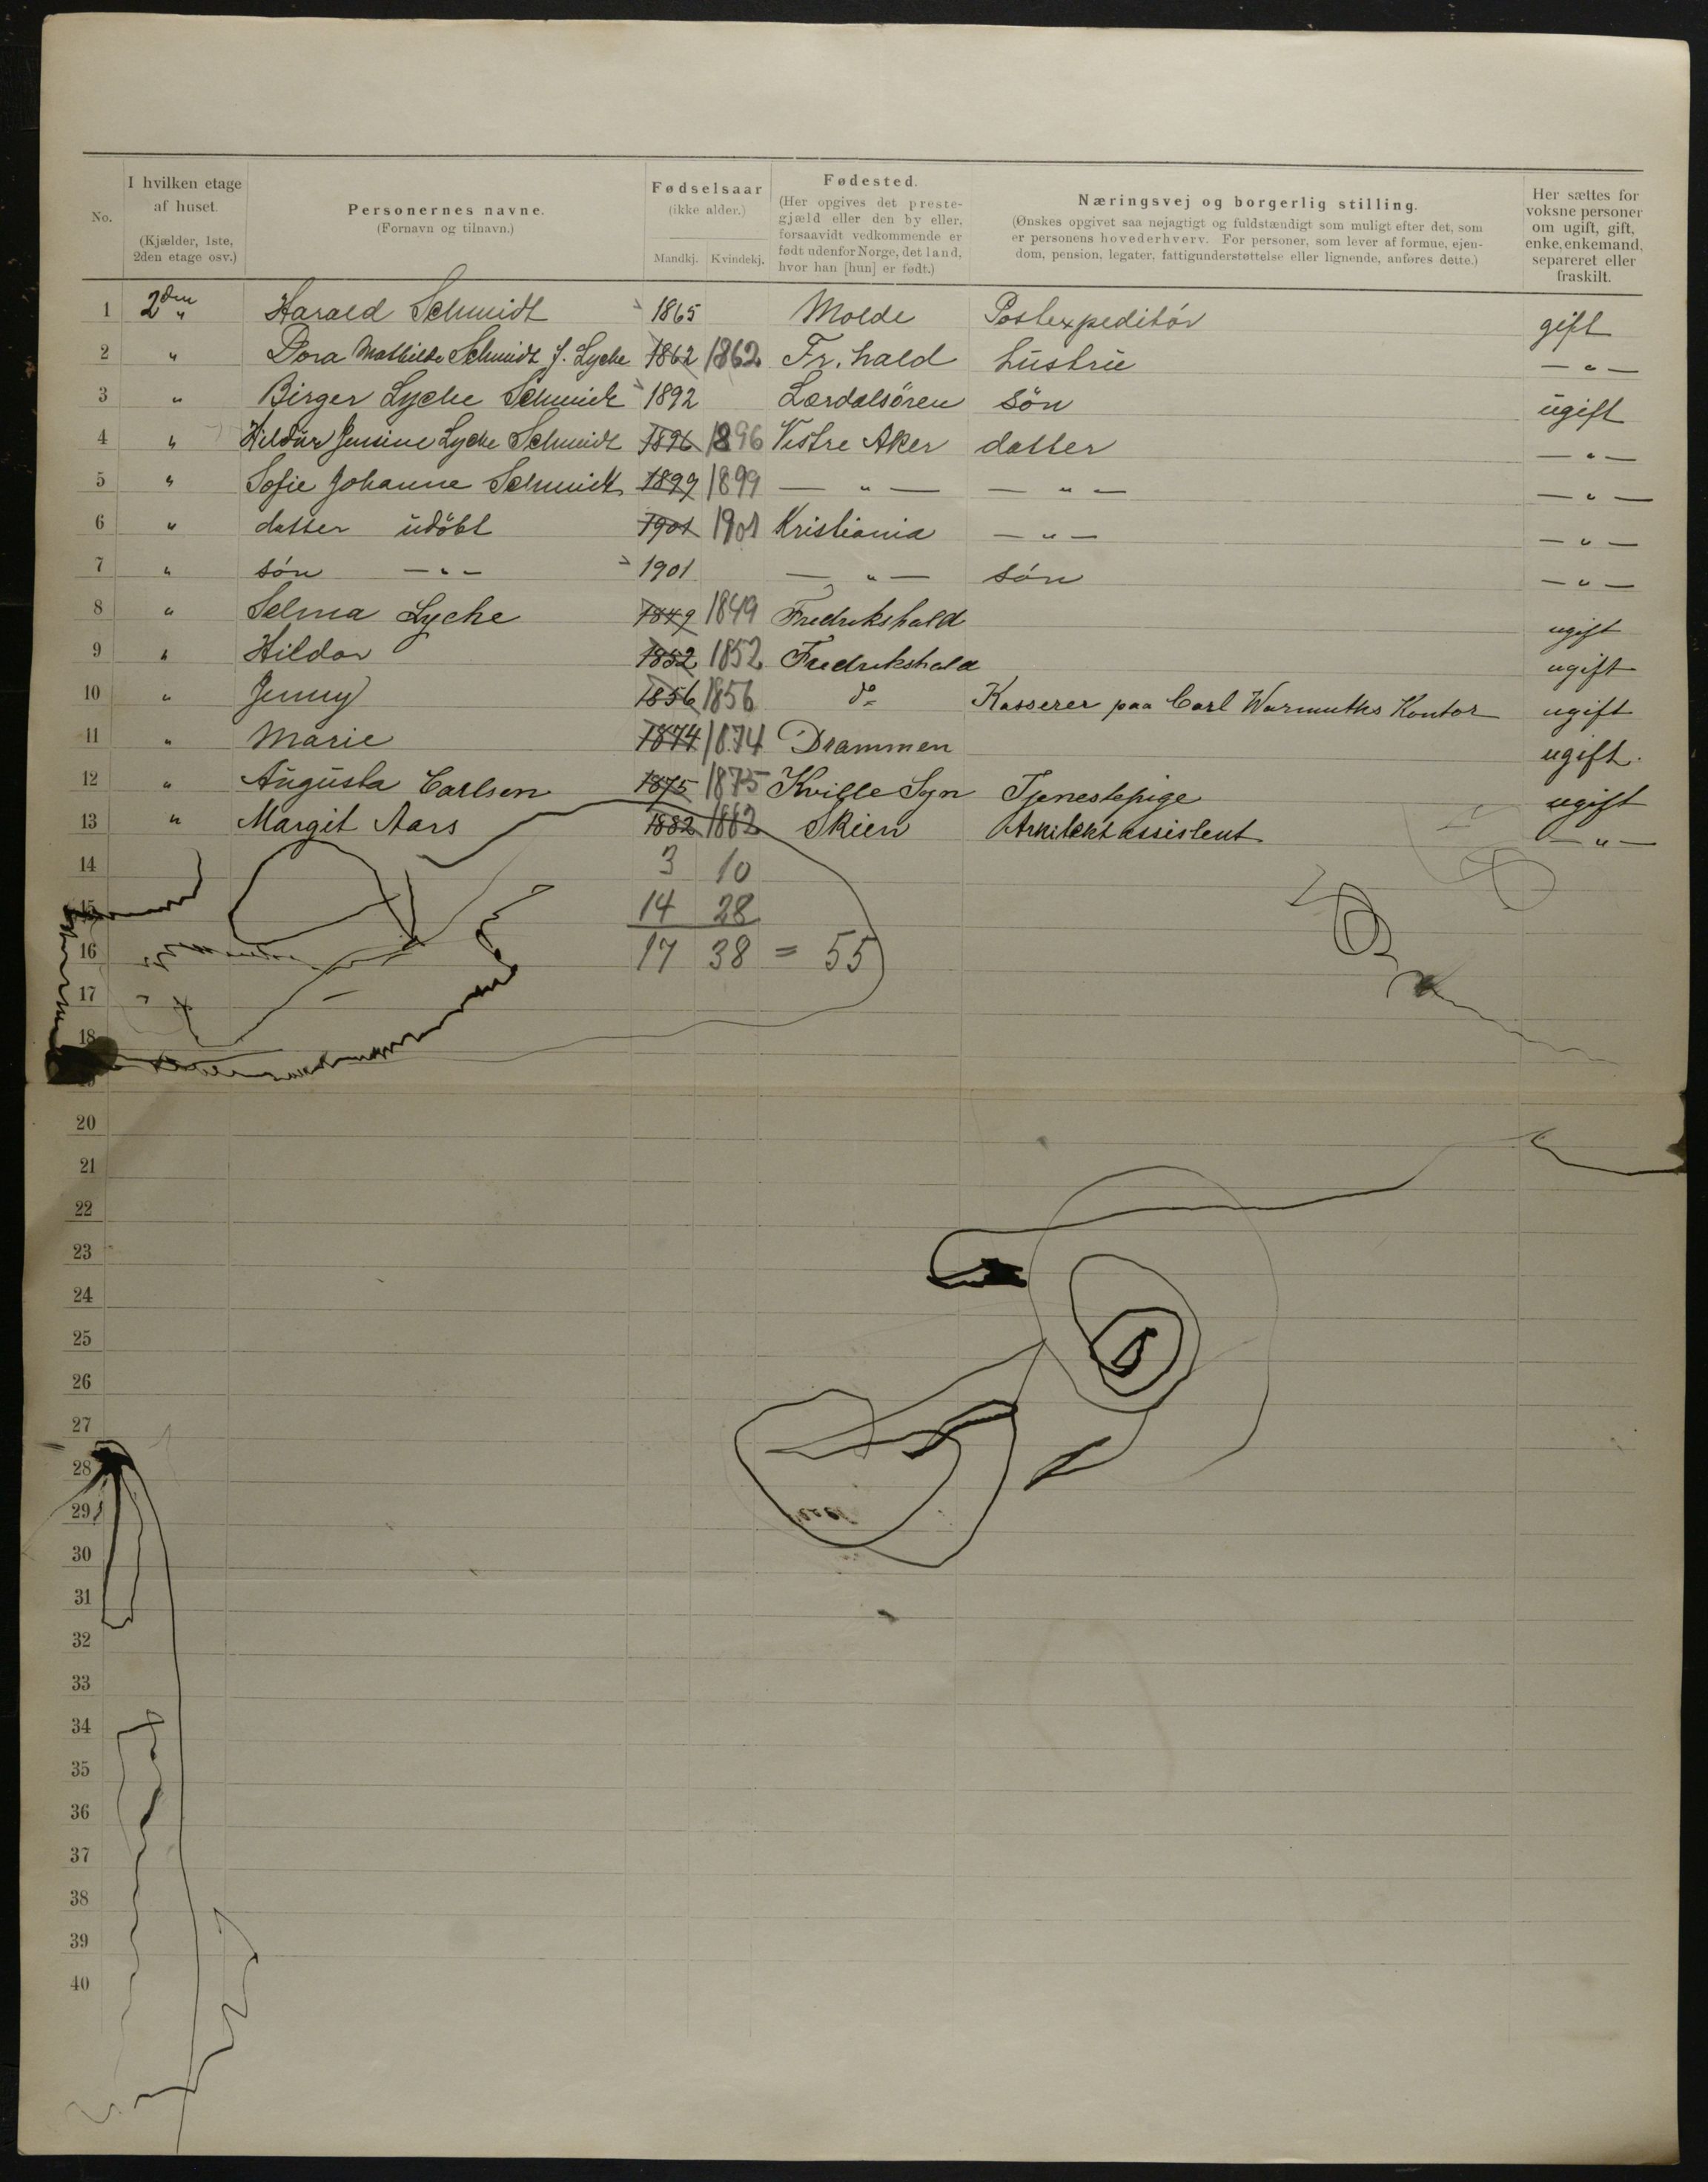 No.
I hvilken etage af huset.
(Kjælder, 1ste, 2den etage osv.)
Personernes navne.
(Fornavn og tilnavn.)
Fødselsaar
(ikke alder.)
Mandkj. Kvindekj.
Fødested.
(Her opgives det preste-
gjæld eller den by eller,
forsaavidt vedkommende er
født udenfor Norge, det land,
hvor han [hun] er født.)
Næringsvej og borgerlig stilling.
(Ønskes opgivet saa nøjagtigt og fuldstændigt som muligt efter det, som
er personens hovederhverv. For personer, som lever af formue, ejen-
dom, pension, legater, fattigunderstøttelse eller lignende, anføres dette.)
Her sættes for
voksne personer
om ugift, gift,
enke, enkemand,
separeret eller
fraskilt.
1 2den " Harald Schmidt 1865 Molde Postexpeditór gift
2 " Dora Mathilde Schmidt f. Lyche 1862 1862 Fr. hald hustru — " —
3 " Birger Lyche Schmidt 1892 Lærdalsören sön ugift
4 " Hildur Jensine Lyche Schmidt 1896 1896 Vestre Aker datter — " —
5 " Sofie Johanne Schmidt 1899 1899 — " — — " — — " —
6 " datter udöbt 1901 1901 Kristiania — " — — " —
7 " són — " — 1901 — " — són — " —
8 " Selma Lyche 1849 1849 Fredrikshald ugift
9 " Hildor 1852 1852 Fredrikshald ugift
10 " Jenny 1856 1856 do Kasserer paa Carl Warmuths Kontor ugift
11 " Marie 1874 1874 Drammen ugift.
12 " Augusta Carlsen 1875 1875 Kville Sgn Tjenestepige ugift
13 " Margit Aars 1882 1882 Skien Arkitekt assistent — " —
14 3 10
15 14 28
16 17 38 = 55
17
18
19
20
21
22
23
24
25
26
27
28
29
30
31
32
33
34
35
36
37
38
39
40